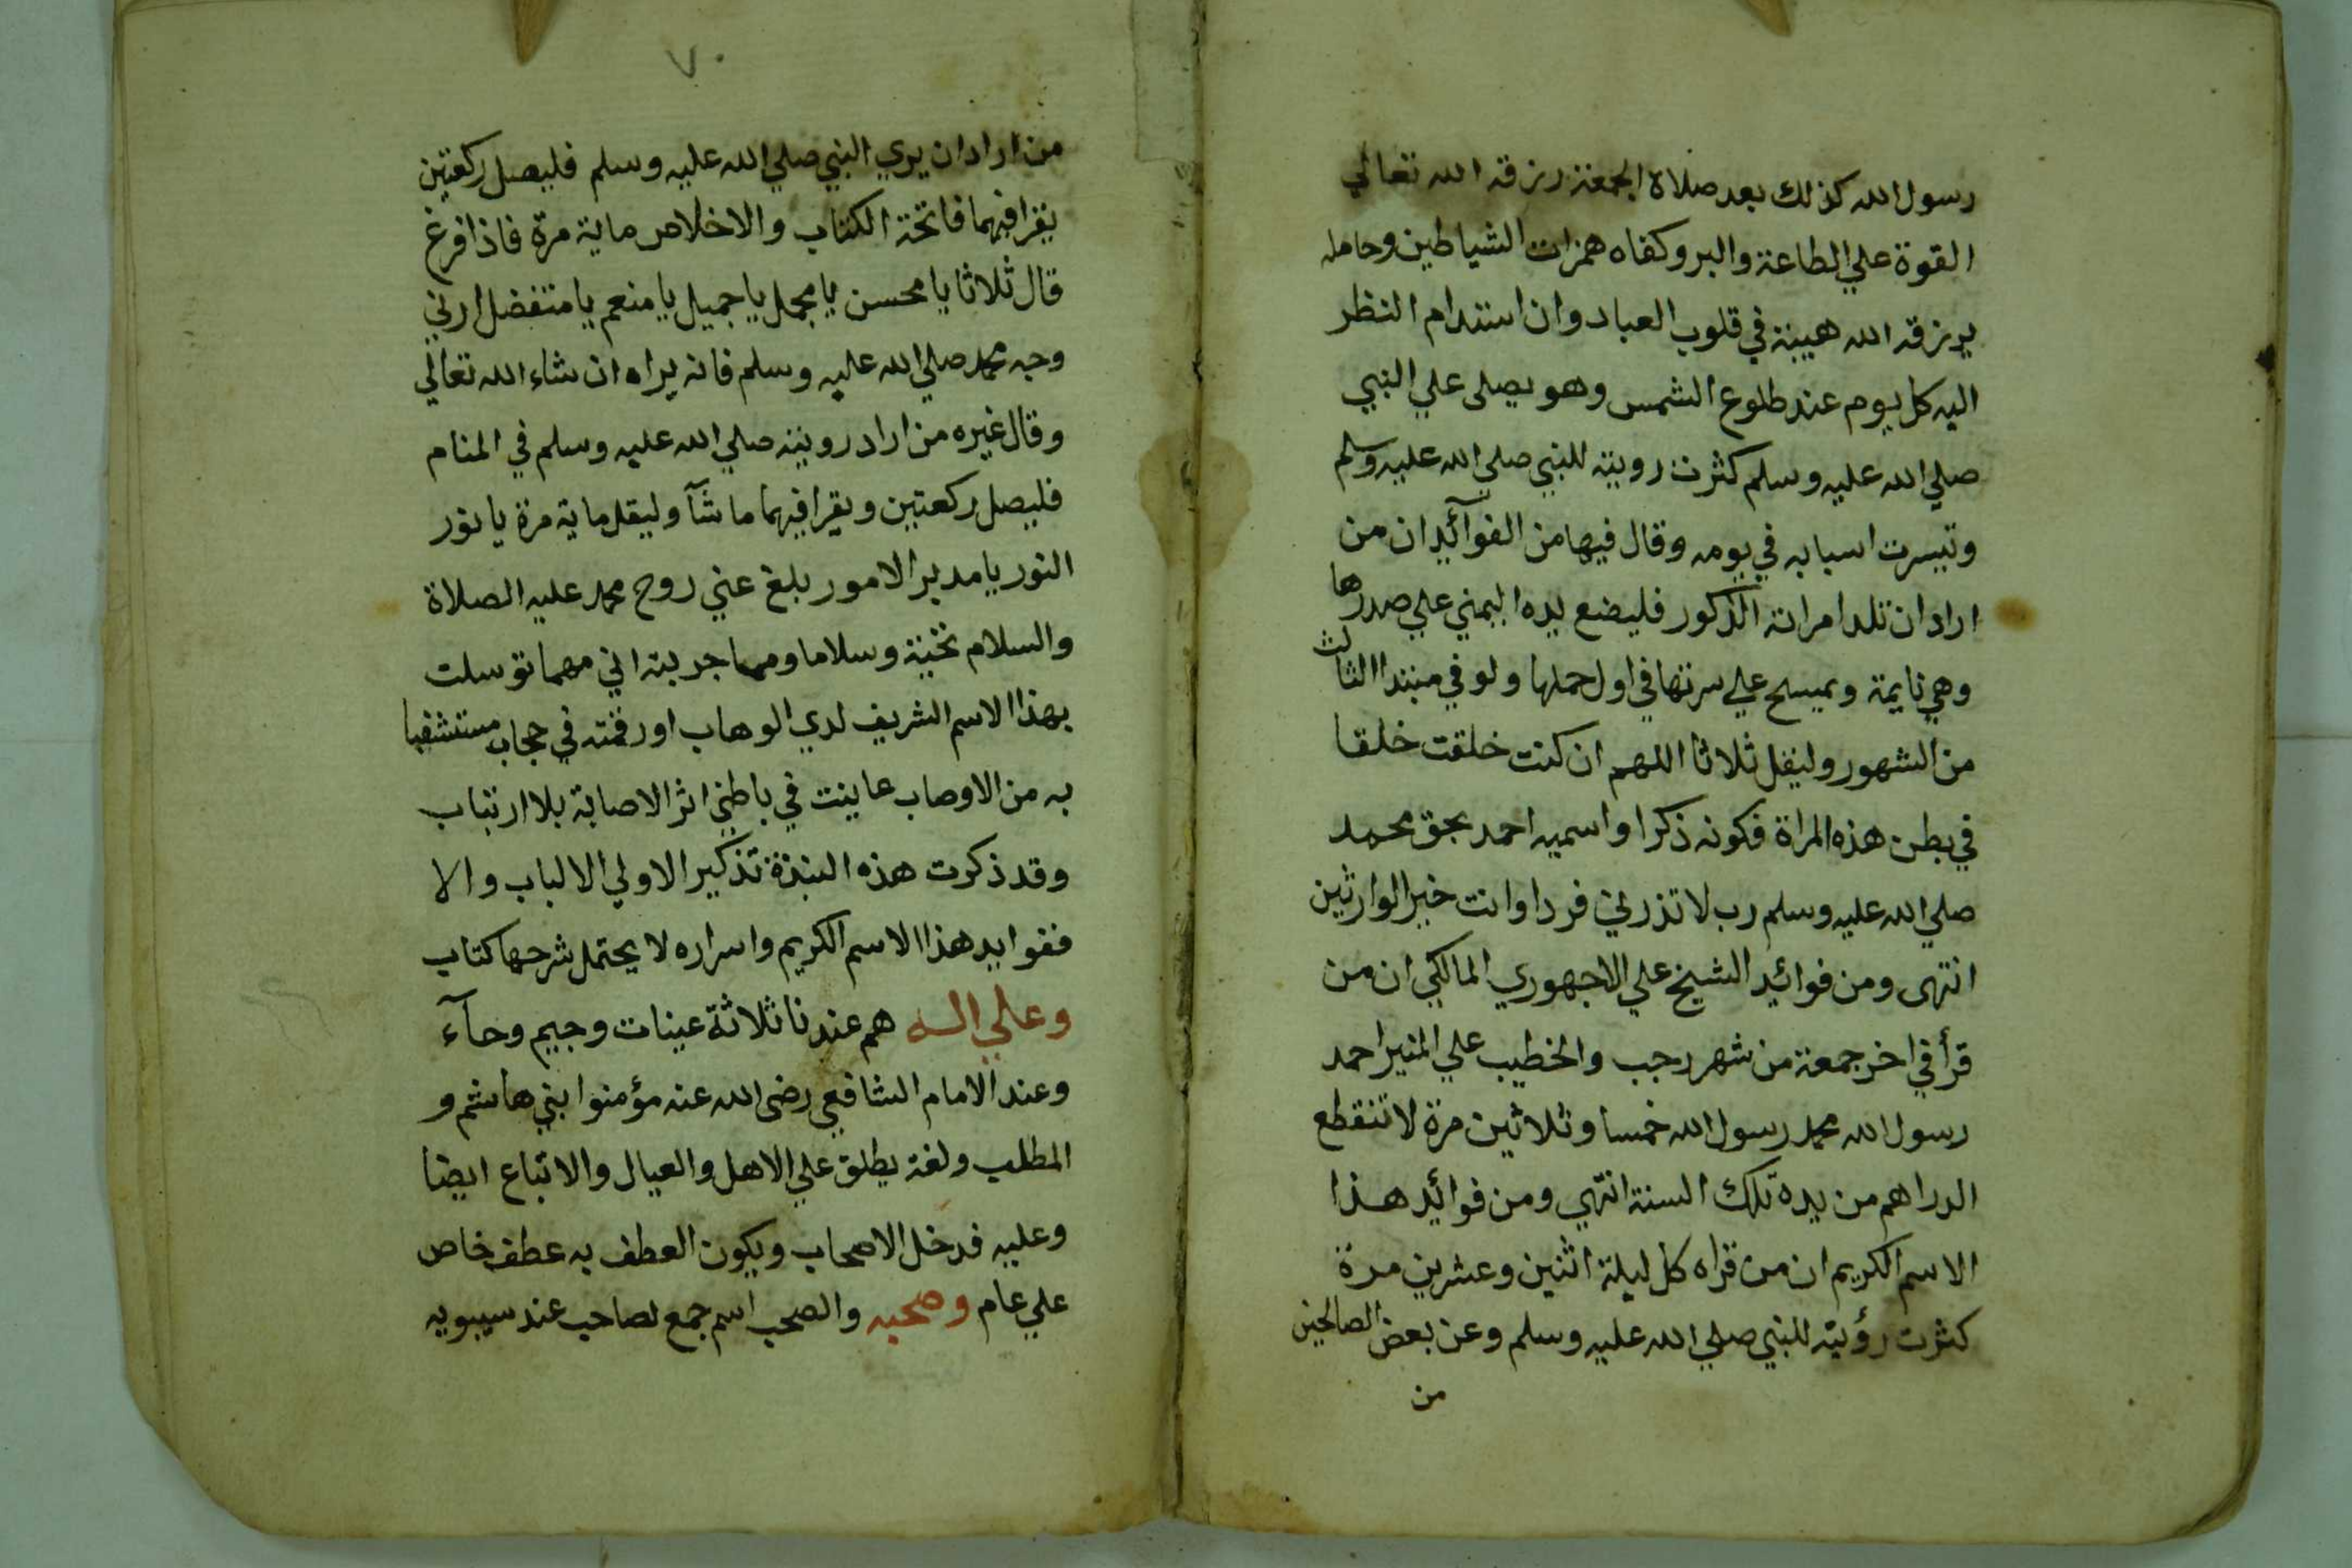 رسول الله كذلك بعد صلاة الجمعة رزقه الله تعالي
القوة علي الطاعة والبر وكفاه همزات الشياطين وحامله
يرزقه الله هيبة في قلوب العباد وان استدام النظر
اليه كل يوم عند طلوع الشمس وهو يصلى علي النبي
صلي الله عليه وسلم كثرت رويته للنبي صلي الله عليه وسلم
وتيسرت اسبابه في يومه وقال فيها من الفوآئد ان من
اراد ان تلد امراته الذكور فليضع يده اليمني علي صدرها
وهي نايمة ويمسح علي سرتها في اول حملها ولو في مبتدا الثالث
من الشهور وليقل ثلاثا اللهم ان كنت خلقت خلقا
في بطن هذه المراة فكونه ذكرا واسميه احمد بحق محمد
صلي الله عليه وسلم رب لا تذرني فردا وانت خير الوارثين
انتهى ومن فوائد الشيخ علي الاجهوري المالكي ان من
قرأ في اخر جمعة من شهر رجب والخطيب علي المنبر احمد
رسول الله محمد رسول الله خمسا وثلاثين مرة لا تنقطع
الدراهم من يده تلك السنة انتهي ومن فوائد هذا
الاسم الكريم ان من قراه كل ليلة اثنين وعشرين مرة
كثرت رؤيته للنبي صلي الله عليه وسلم وعن بعض الصالحين
من
٧٠
من اراد ان يري النبي صلي الله عليه وسلم فليصل ركعتين
يقرا فيهما فاتحة الكتاب والاخلاص ماية مرة فاذا فرغ
قال ثلاثا يا محسن يا مجمل يا جميل يا منعم يا متفضل ارني
وجه محمد صلي الله عليه وسلم فانه يراه ان شاء الله تعالي
وقال غيره من اراد رويته صلي الله عليه وسلم في المنام
فليصل ركعتين ويقرا فيهما ما شآ وليقل ماية مرة يا نور
النور يا مدبر الامور بلغ عني روح محمد عليه الصلاة
والسلام تحية وسلاما ومما جربته اني مهما توسلت
بهذا الاسم الشريف لدي الوهاب او رقمته في حجاب مستشفيا
به من الاوصاب عاينت في باطني اثر الاصابة بلا ارتياب
وقد ذكرت هذه النبذة تذكير الاولي الالباب والا
ففوايد هذا الاسم الكريم واسراره لا يحتمل شرحها كتاب
وعلي اله هم عندنا ثلاثة عينات وجيم وحآء
وعند الامام الشافعي رضى الله عنه مؤمنوا بني هاشم و
المطلب ولغة يطلق علي الاهل والعيال والاتباع ايضا
وعليه فدخل الاصحاب ويكون العطف به عطف خاص
علي عام وصحبه والصحب اسم جمع لصاحب عند سيبويه